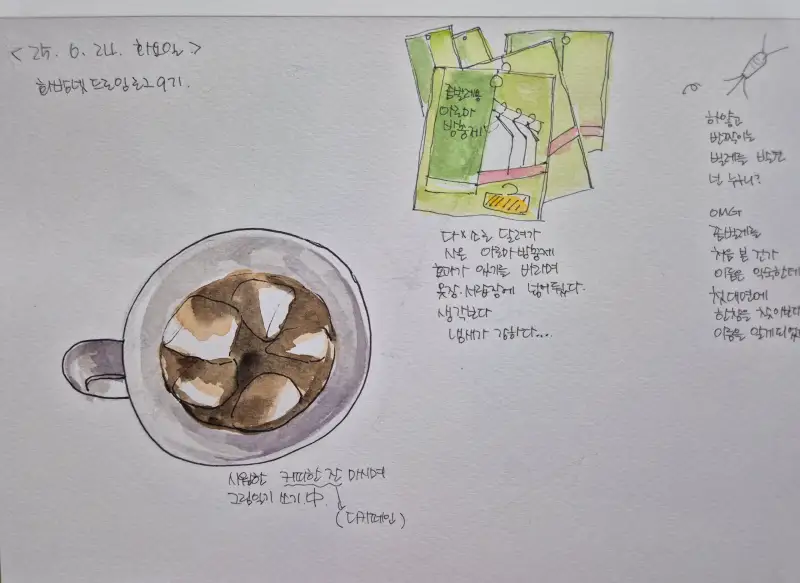 < 25. 6. 24. 화요일 >
좀벌레용
아로마
방충제!
다있소로 달려가
사온 아로마방충제
효과가 있기를 바라며
옷장·서랍장에 넣어뒀다.
생각보다
냄새가 강하다...
하얗고
반짝이는
벌레를 발견
넌 누구니?
OMG
좀벌레를
처음 본 건가
이름은 익숙한데
첫대면에
한참을 찾아보다
이름을 알게되었
시원한 커피한 잔 마시며
그림일기 쓰기.中.
(디카페인)